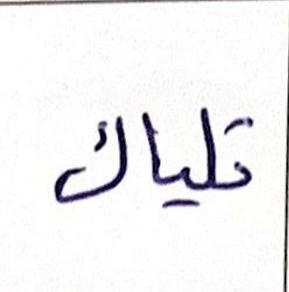 تلياك